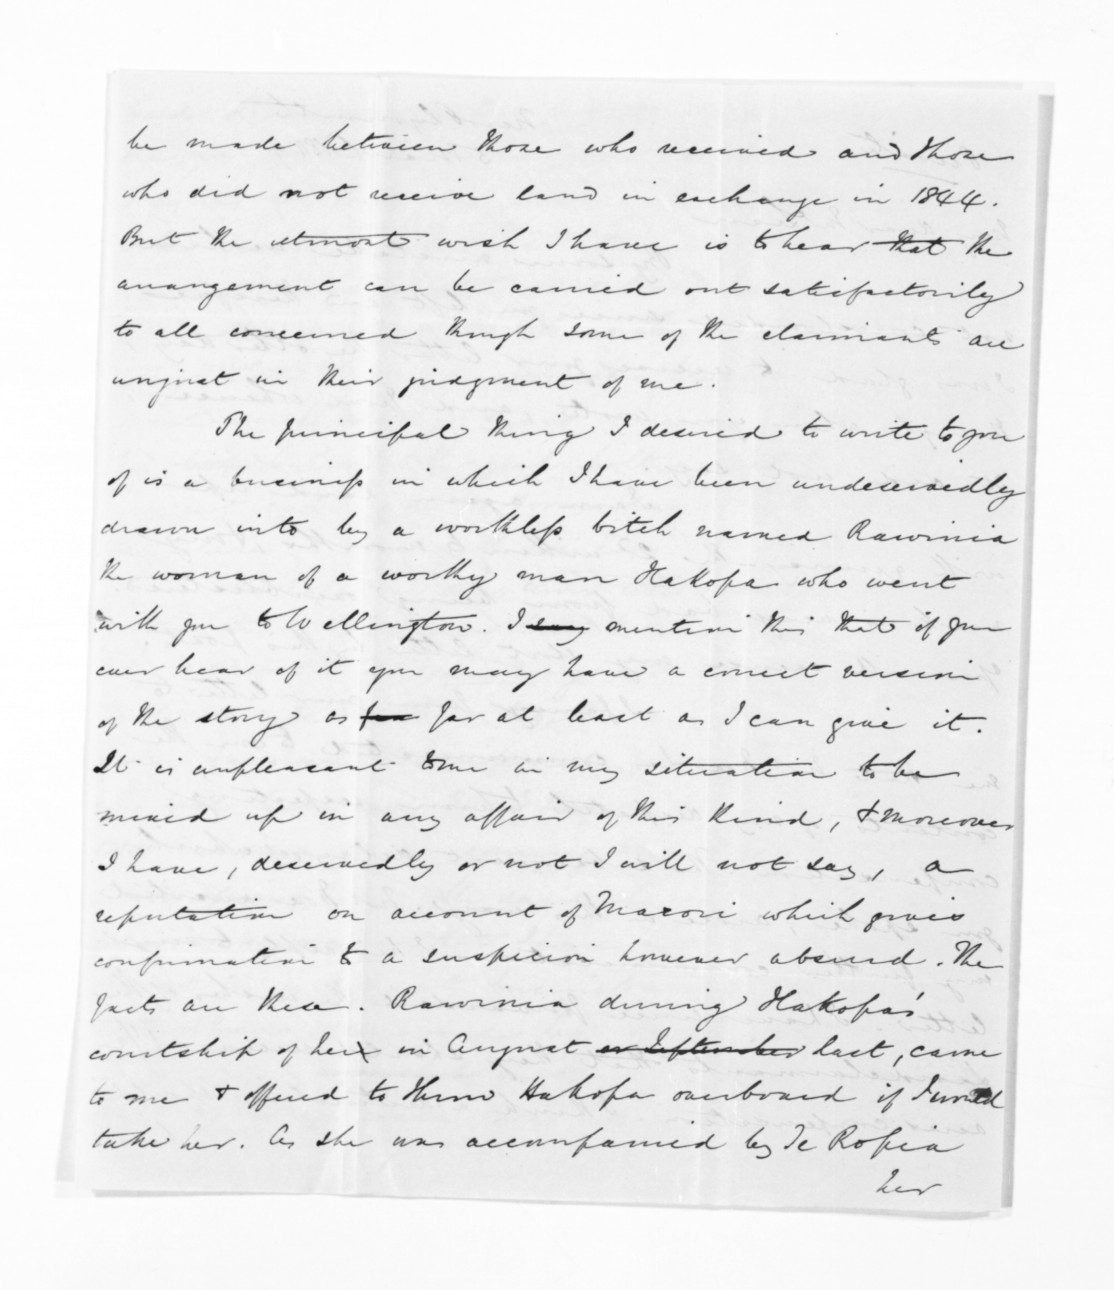 be made between those who received and those
who did not receive land in exchange in 1844.
But the utmost wish I have is to hear that the
arrangement can be carried out satisfactorily
to all concerned though some of the claimants are
unjust in their judgment of me.
The principal thing I desired to write to you
of is a business in which I have been undeservedly
drawn into by a worthless bitch named Rawinia
the woman of a worthy man Hakopa who went
with you to Wellington. I say mention this that if you
ever hear of it you may have a correct version
of the story as far far at least as I can give it.
It is unpleasant to me in my situation to be
mixed up in any affair of this kind, & moreover
I have, deservedly or not I will not say, a
reputation on account of Maoori which gives
confirmation to a suspicion however absurd. The
facts are these. Rawinia during Hakopa's
courtship of her in August or September last, came
to me & offered to throw Hakopa overboard if I would
take her. As she was accompanied by Te Ropiha
her